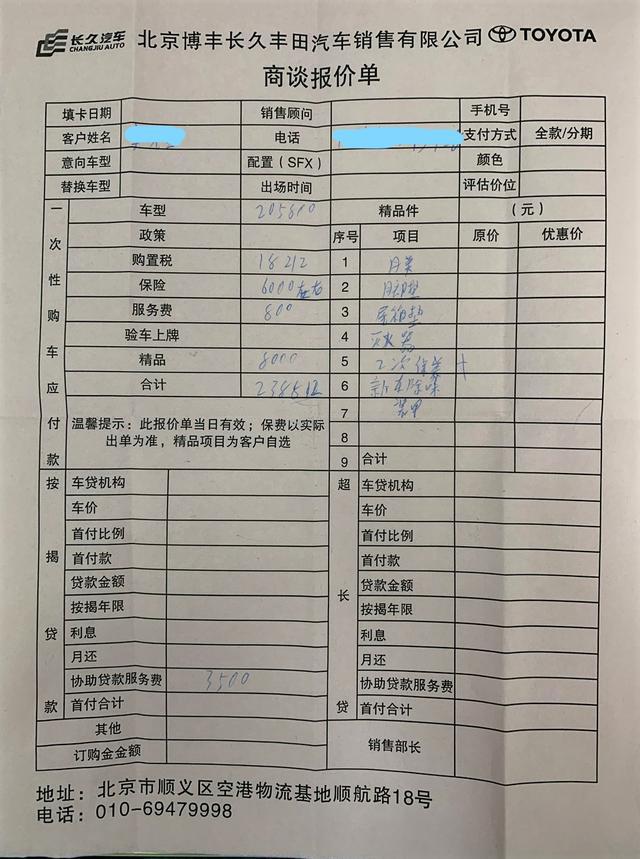 长久汽车 CHANGJIU AUTO 北京博丰长久丰田汽车销售有限公司 TOYOTA
商谈报价单
填卡日期 销售顾问 手机号
客户姓名 电话 支付方式 全款/分期
意向车型 配置（SFX） 颜色
替换车型 出场时间 评估价位
一次性购车应付款 车型 205800 精品件 （元）
政策 序号 项目 原价 优惠价
购置税 18212 1
保险 6000左右 2
服务费 800 3 尾箱垫
验车上牌 4 灭火器
精品 8000 5 2次保养
合计 6 新车除味
7 装甲
温馨提示：此报价单当日有效；保费以实际
出单为准，精品项目为客户自选
8
9 合计
按揭贷款 车贷机构 超长贷 车贷机构
车价 车价
首付比例 首付比例
首付款 首付款
贷款金额 贷款金额
按揭年限 按揭年限
利息 利息
月还 月还
协助贷款服务费 3500 协助贷款服务费
首付合计 首付合计
其他 销售部长
订购金金额
地址：北京市顺义区空港物流基地顺航路18号
电话：010-69479998